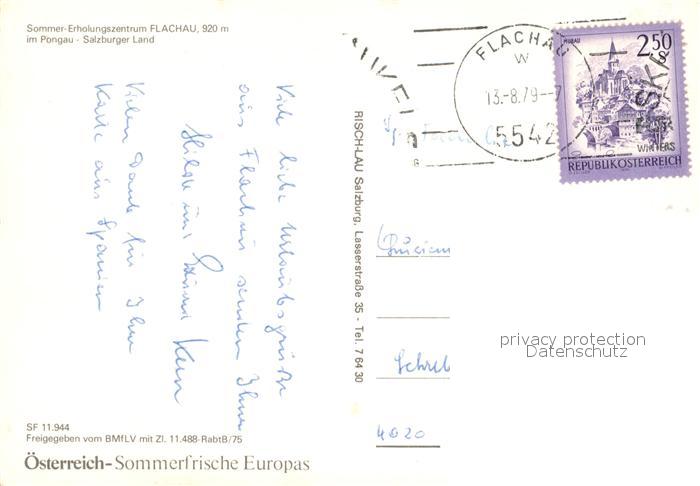 Sommer-Erholungszentrum FLACHAU, 920 m
im Pongau - Salzburger Land
Viele liebe Urlaubsgrüße
aus Flachau senden Ihnen
Hilde und
Vielen Dank für Ihre
Karte aus Spanien
SF 11.944
Freigegeben vom BMfLV mit Zl. 11.488-RabtB/75
Österreich-Sommerfrische Europas
RISCH-LAU Salzburg, Lasserstraße 35 - Tel. 7 64 30
FLACHAU
W
13.-8.79-
5542
2,50
S
MURAU
REPUBLIK ÖSTERREICH
WINTERS
Familie
4020
privacy protection
Datenschutz